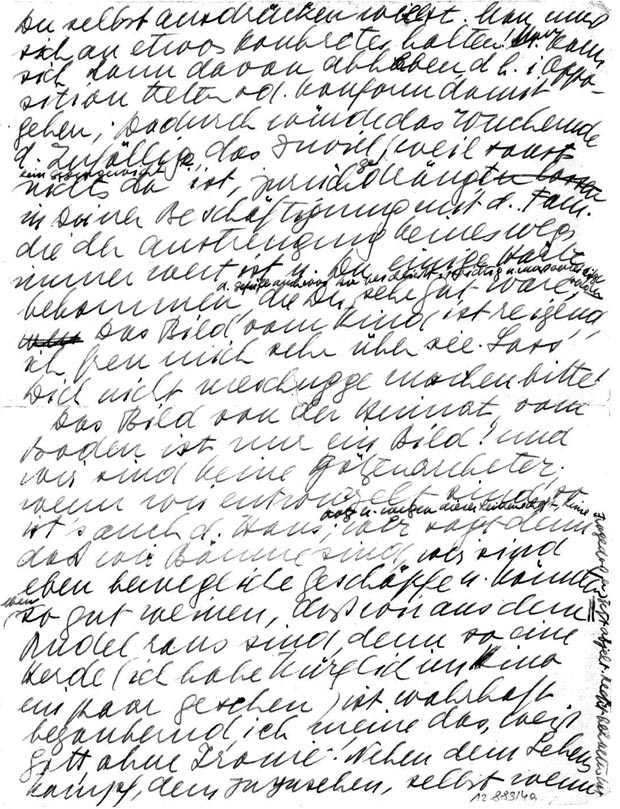 Du selbst ausdrücken willst. Man muß
sich an etwas konkretes halten! Man kann
sich dann davon abheben d. h. i Oppo-
sition treten od. konform damit
gehen; dadurch würde das Wuchernde
d. Zufällige das Zuviel (weil sonst
nichts da ist, zurückgedrängt
in Deiner Beschäftigung mit d. Fam.
die der Anstrengung keineswegs
immer wert ist u. Du
bekommen, die Dir sehr gut wäre,
Das Bild vom Kind ist reizend,
ich freu mich sehr über sie. Lass'
Dich nicht meschugge machen bitte!
Das Bild von der Heimat, vom
Boden ist nur ein Bild! und
wir sind keine Götzenarbeiter,
wenn wir entwurzelt sind, so
ist's auch d. Haus, wer sagt denn
daß wir Bäume sind, wir sind
eben bewegliche Geschöpfe u. können
eben
so gut weinen, daß wir aus dem
Rudel raus sind, denn so eine
Herde (ich habe kürzlich im Kino
ein paar gesehen) ist wahrhaft
bezaubernd ich meine das, weiß
Gott ohne Ironie! Neben dem Lebens
kampf, dem zuzusehen, selbst wenn
12 883/49